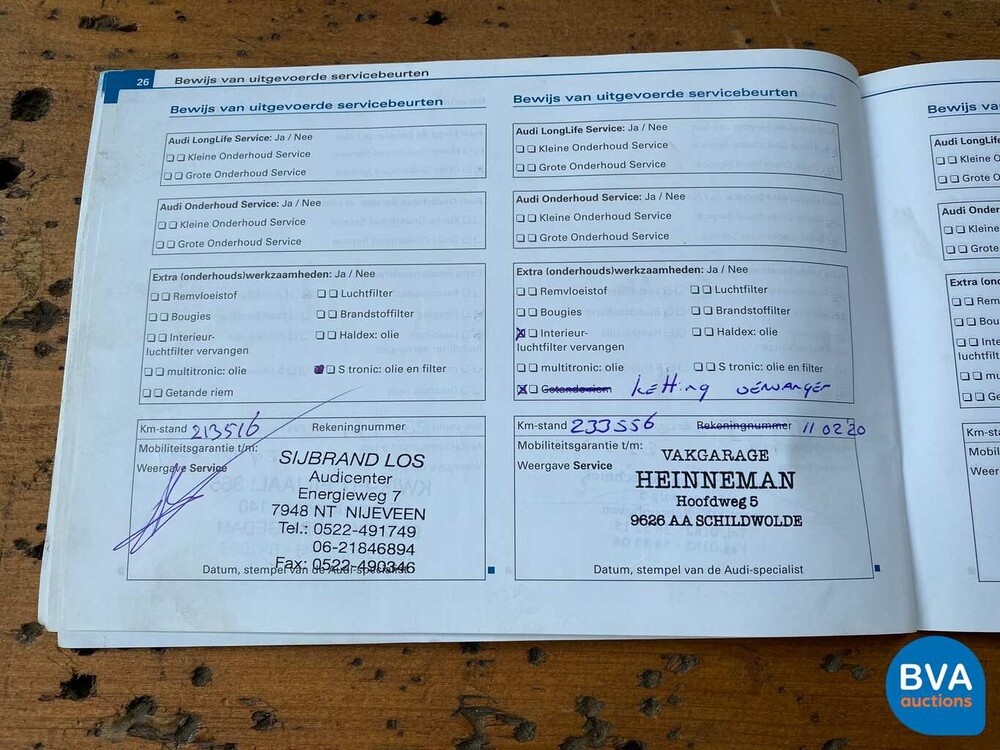 26 Bewijs van uitgevoerde servicebeurten
Bewijs van uitgevoerde servicebeurten
Audi LongLife Service: Ja / Nee
Kleine Onderhoud Service
Grote Onderhoud Service
Audi Onderhoud Service: Ja / Nee
Kleine Onderhoud Service
Grote Onderhoud Service
Extra (onderhouds)werkzaamheden: Ja / Nee
Remvloeistof Luchtfilter
Bougies Brandstoffilter
Interieur- Haldex: olie
luchtfilter vervangen
multitronic: olie S tronic: olie en filter
Getande riem
Km-stand 213516 Rekeningnummer
Mobiliteitsgarantie t/m:
Weergave Service
SIJBRAND LOS
Audicenter
Energieweg 7
7948 NT NIJEVEEN
Tel.: 0522-491749
06-21846894
Fax: 0522-490346
Datum, stempel van de Audi-specialist
Bewijs van uitgevoerde servicebeurten
Audi LongLife Service: Ja / Nee
Kleine Onderhoud Service
Grote Onderhoud Service
Audi Onderhoud Service: Ja / Nee
Kleine Onderhoud Service
Grote Onderhoud Service
Extra (onderhouds)werkzaamheden: Ja / Nee
Remvloeistof Luchtfilter
Bougies Brandstoffilter
Interieur- Haldex: olie
luchtfilter vervangen
multitronic: olie S tronic: olie en filter
Getande riem ketting vervangen
Km-stand 233556 Rekeningnummer 11 02 20
Mobiliteitsgarantie t/m:
Weergave Service
VAKGARAGE
HEINNEMAN
Hoofdweg 5
9626 AA SCHILDWOLDE
Datum, stempel van de Audi-specialist
Bewijs va
Audi LongLife
Kleine O
Grote O
Audi Onder
Kleine
Grote
Extra (ond
Rem
Bou
Inte
luchtfilte
mu
Ge
Km-sta
Mobil
Weer
BVA
auctions